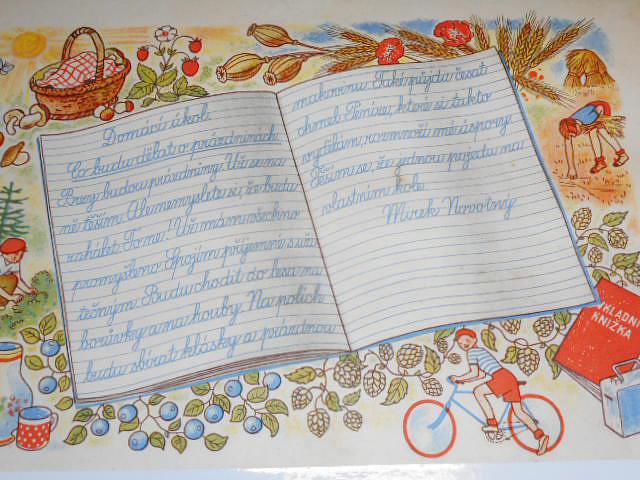 Domácí úkol
Co budu dělat o prázdninách
Brzy budou prázdniny. Už se na
ně těším. Ale nemyslete si, že budu
zahálet. To ne! Už mám všechno
promyšleno. Spojím příjemné s uži-
tečným. Budu chodit do lesa na
borůvky a na houby. Na polích
budu sbírat klásky a prázdnou
makovinu. Také půjdu česat
chmel. Peníze, které si takto
vydělám, rozmnoží mé úspory.
Těším se, že jednou pojedu na
vlastním kole.
Mirek Novotný
KLADNÍ
KNÍŽKA